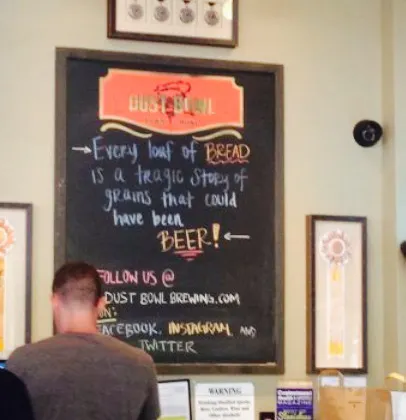 DUST BOWL
→Every loaf of BREAD
is a tragic story of
grains that could
have been
BEER!←
FOLLOW US @
DUST BOWL BREWING.COM
ON:
FACEBOOK, INSTAGRAM, AND
TWITTER
WARNING